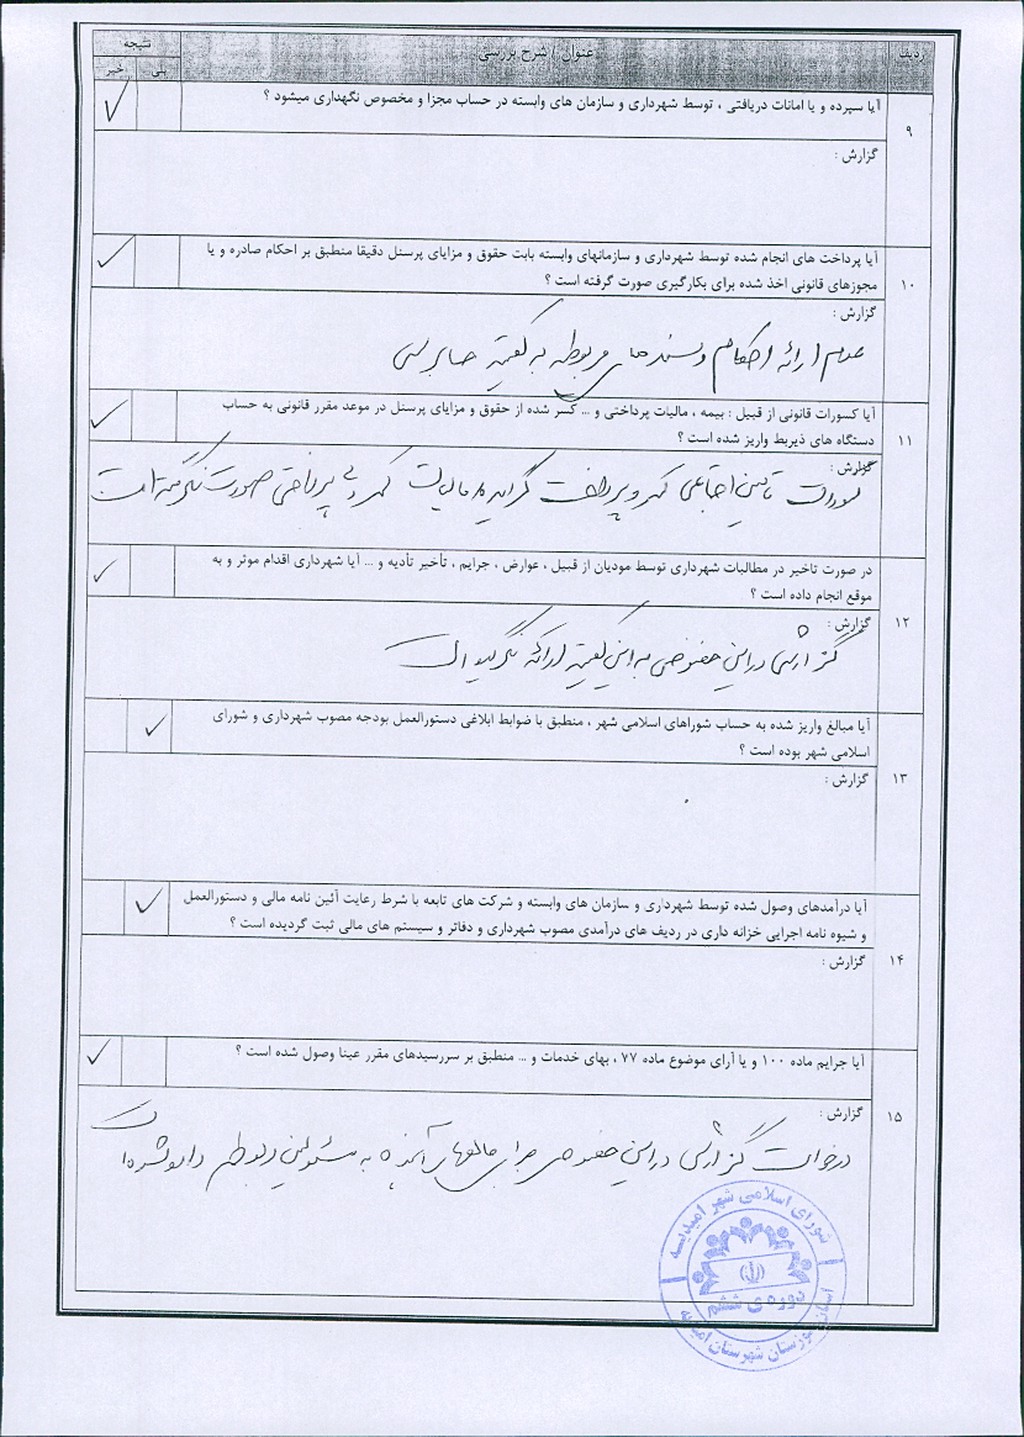 ردیف
عنوان / شرح بررسی
نتیجه
بلی
خیر
۹
آیا سپرده و یا امانات دریافتی ، توسط شهرداری و سازمان های وابسته در حساب مجزا و مخصوص نگهداری میشود ؟
گزارش :
۱۰
آیا پرداخت های انجام شده توسط شهرداری و سازمانهای وابسته بابت حقوق و مزایای پرسنل دقیقا منطبق بر احکام صادره و یا
مجوزهای قانونی اخذ شده برای بکارگیری صورت گرفته است ؟
گزارش :
عدم ارائه احکام و سندهای مربوطه به کمیته حسابرسی
۱۱
آیا کسورات قانونی از قبیل : بیمه ، مالیات پرداختی و ... کسر شده از حقوق و مزایای پرسنل در موعد مقرر قانونی به حساب
دستگاه های ذیربط واریز شده است ؟
گزارش :
کسورات تامین اجتماعی کسر و پرداخت گردیده مالیات کسر ولی پرداختی صورت نگرفته است
۱۲
در صورت تاخیر در مطالبات شهرداری توسط مودیان از قبیل ، عوارض ، جرایم ، تأخیر تأدیه و ... آیا شهرداری اقدام موثر و به
موقع انجام داده است ؟
گزارش :
گزارشی در این خصوص به این کمیته ارائه نگردیده است
۱۳
آیا مبالغ واریز شده به حساب شوراهای اسلامی شهر ، منطبق با ضوابط ابلاغی دستورالعمل بودجه مصوب شهرداری و شورای
اسلامی شهر بوده است ؟
گزارش :
۱۴
آیا درآمدهای وصول شده توسط شهرداری و سازمان های وابسته و شرکت های تابعه با شرط رعایت آئین نامه مالی و دستورالعمل
و شیوه نامه اجرایی خزانه داری در ردیف های درآمدی مصوب شهرداری و دفاتر و سیستم های مالی ثبت گردیده است ؟
گزارش :
۱۵
آیا جرایم ماده ۱۰۰ و یا آرای موضوع ماده ۷۷ ، بهای خدمات و ... منطبق بر سررسیدهای مقرر عینا وصول شده است ؟
گزارش :
درخواست گزارش در این خصوص برای ماههای آینده به مسئولین مربوطه داده شده است
شورای اسلامی شهر امیدیه
دوره ی ششم
استان خوزستان شهرستان امیدیه